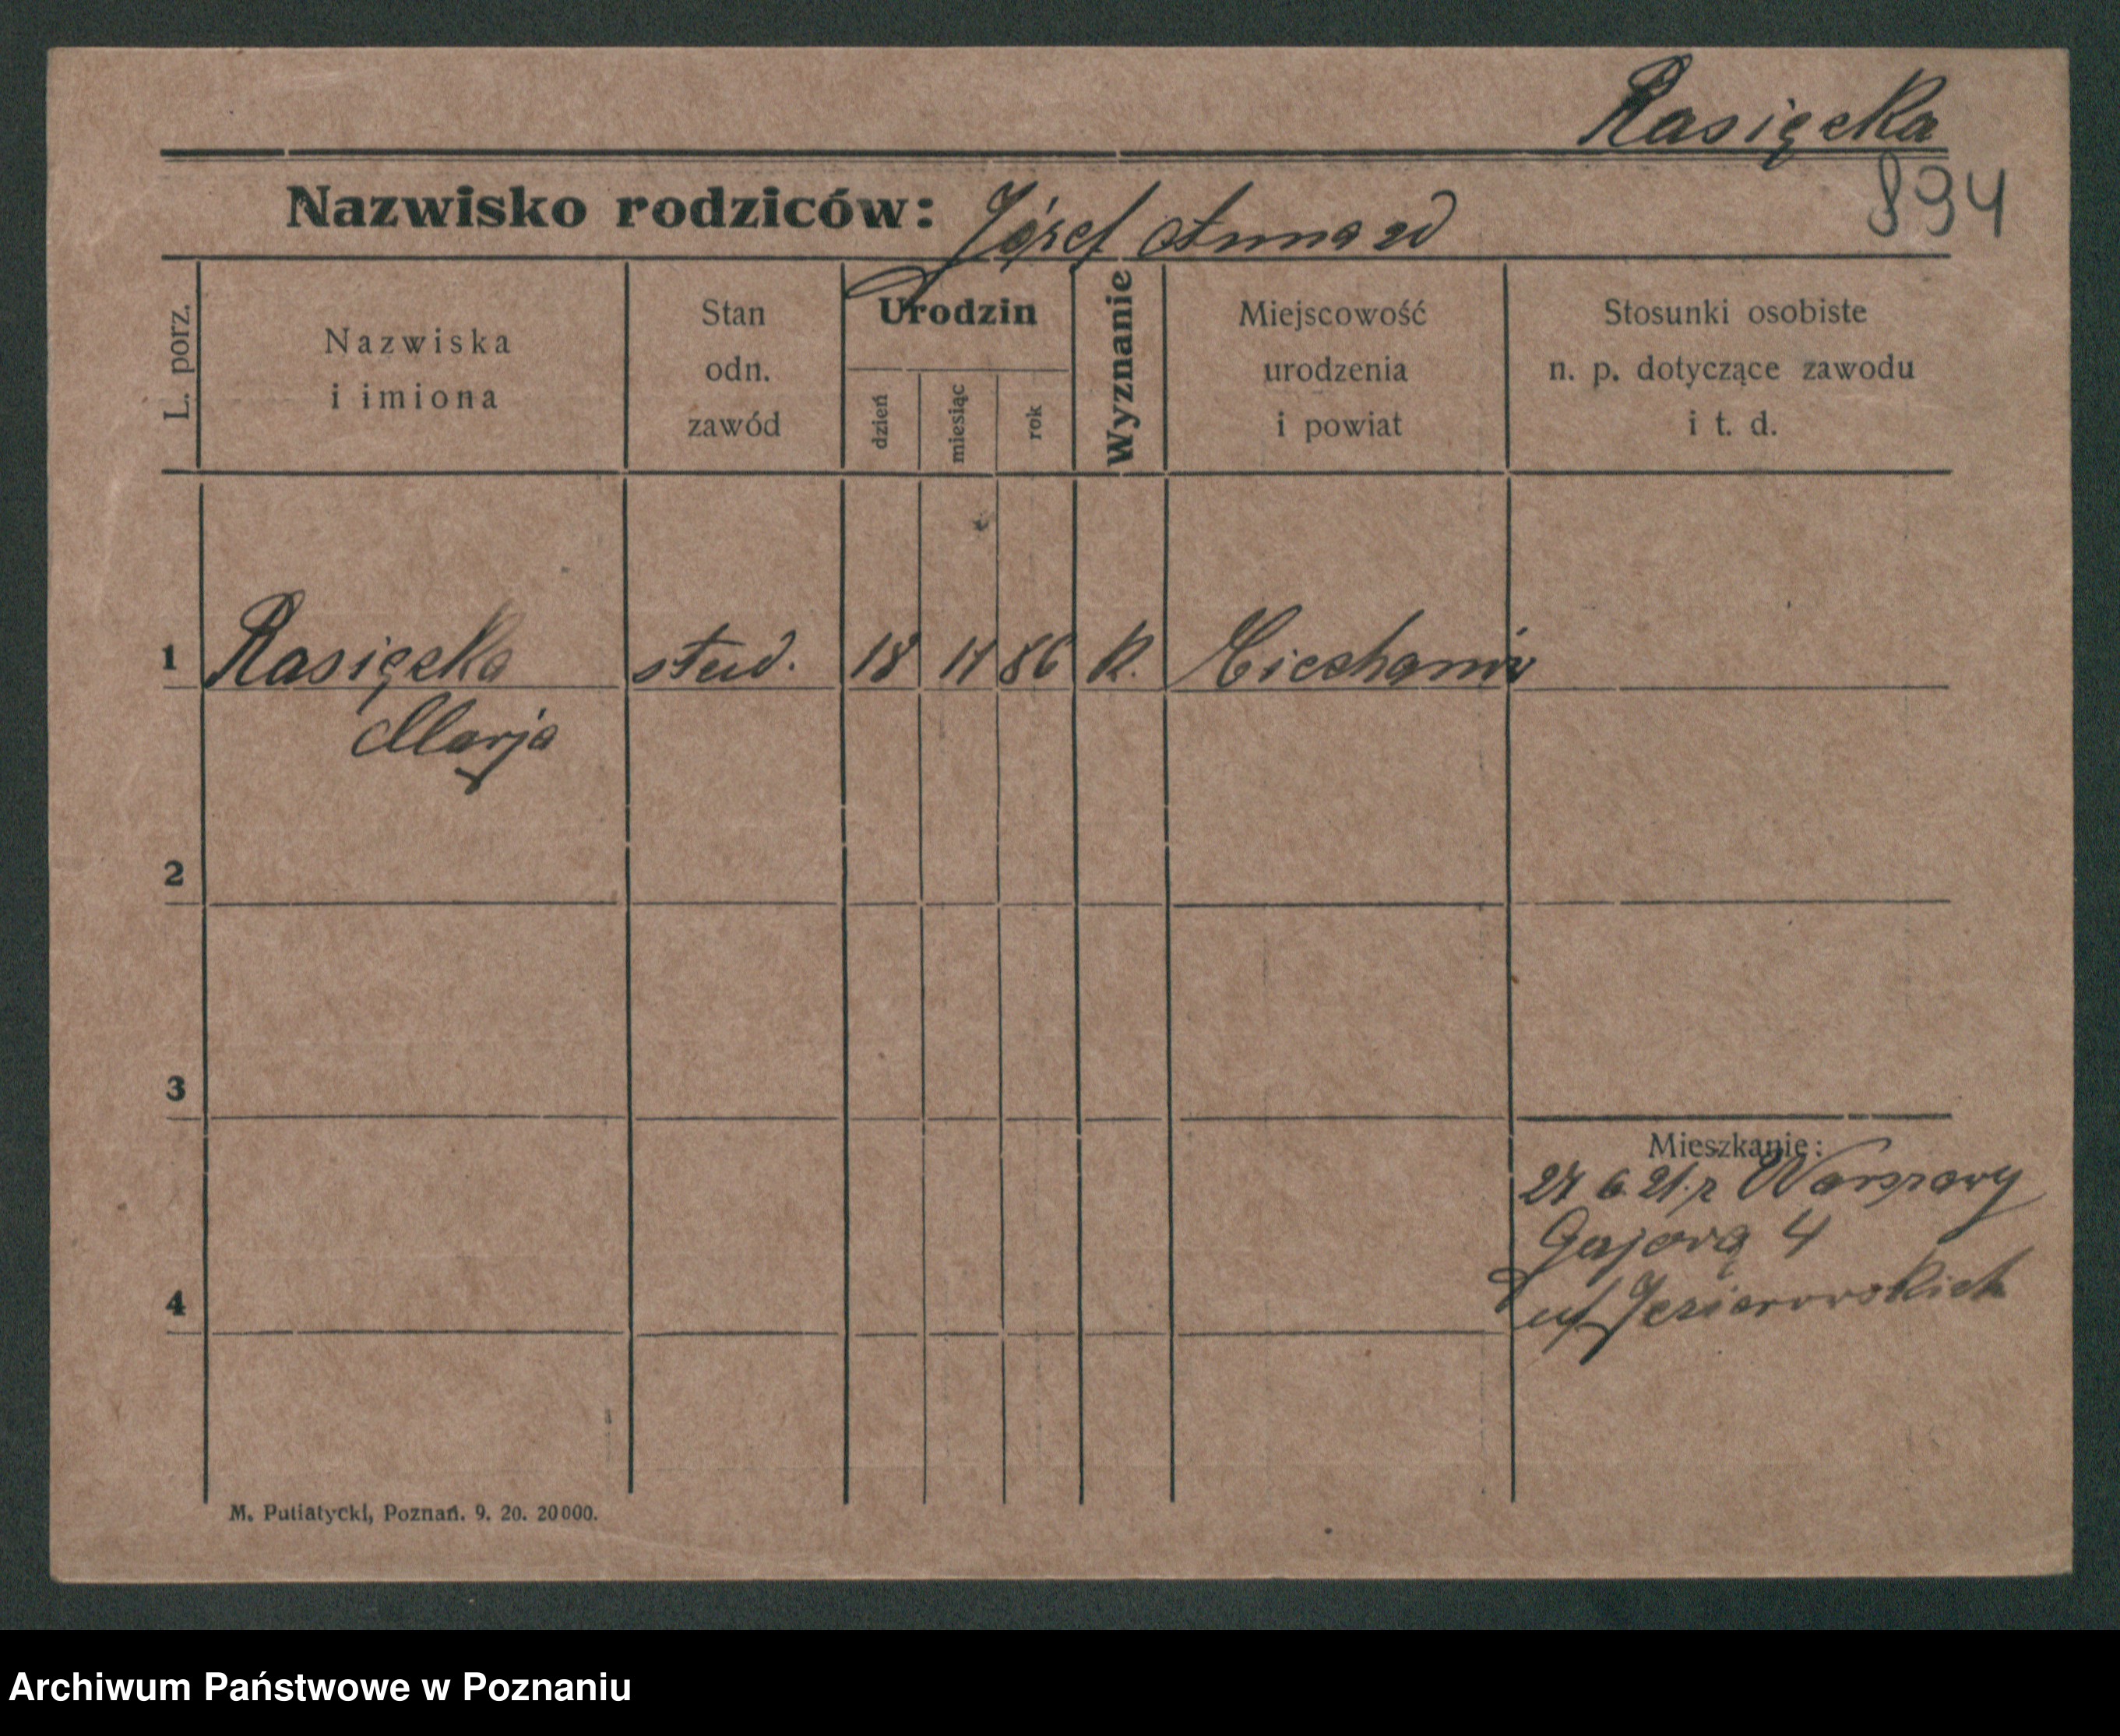 Rasięcka
894
Nazwisko rodziców: Józef Anna zd
L. porz.
Nazwiska
i imiona
Stan
odn.
zawód
Urodzin
dzień
miesiąc
rok
Wyznanie
Miejscowość
urodzenia
i powiat
Stosunki osobiste
n. p. dotyczące zawodu
i t. d.
1 Rasięcka stud. 18 11 86 k. Ciechanów
Marja
2
3
Mieszkanie:
27 6. 21. z Warszawy
Gajowa 4
4
Jeziorowskich
M. Putiatycki, Poznań. 9. 20. 20000.
Archiwum Państwowe w Poznaniu